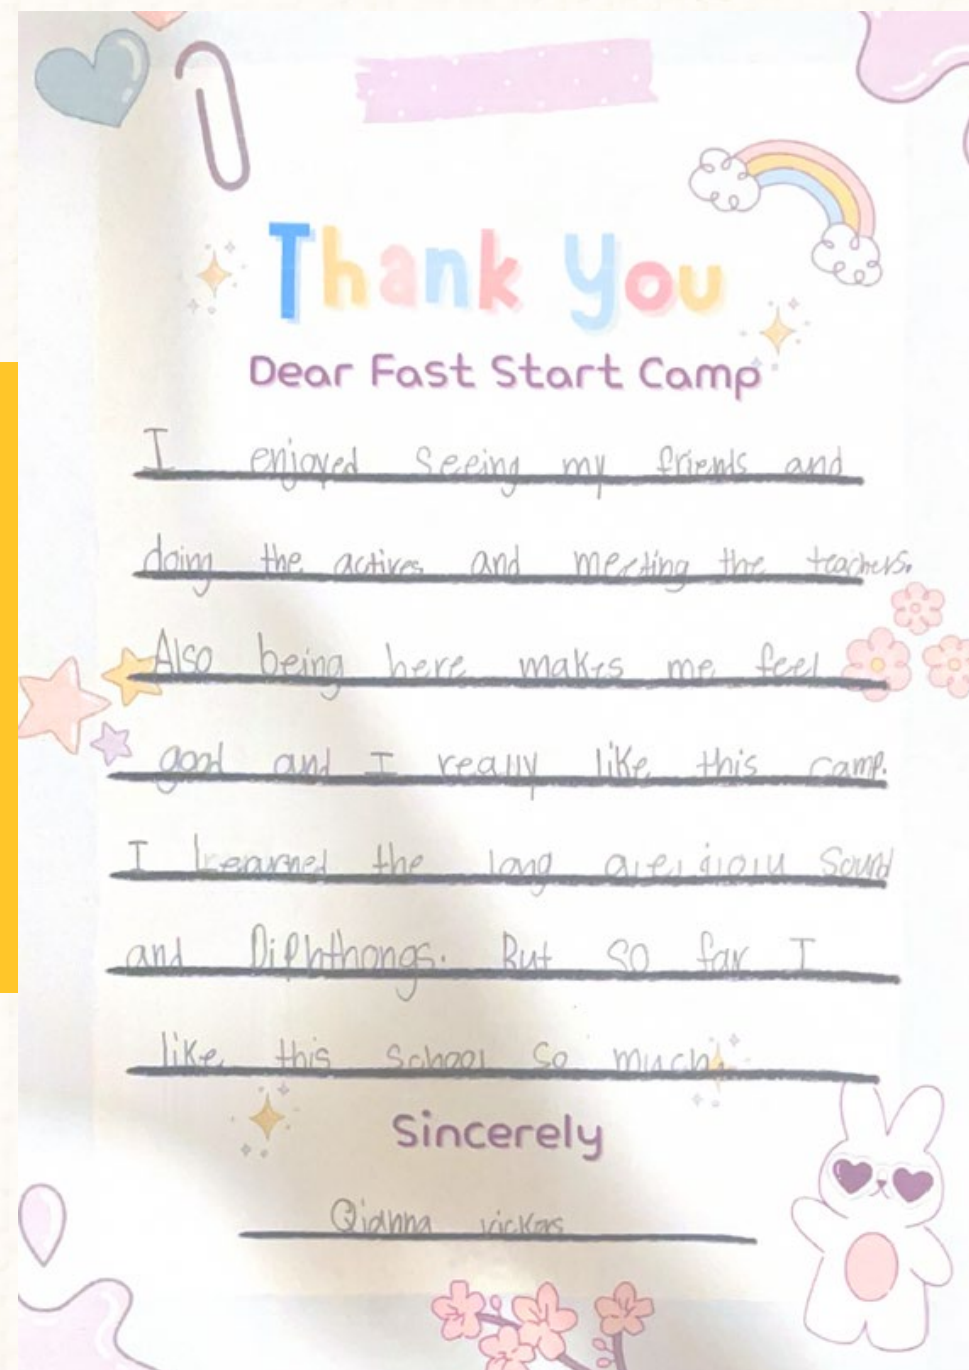 Thank You
Dear Fast Start Camp
I enjoyed Seeing my friends and
doing the actives and meeting the teachers.
Also being here makes me feel
good and I really like this camp.
I Learned the long a,e,i,o,u Sound
and Diphthongs. But so far I
like this School So much
Sincerely
Qianna vickers